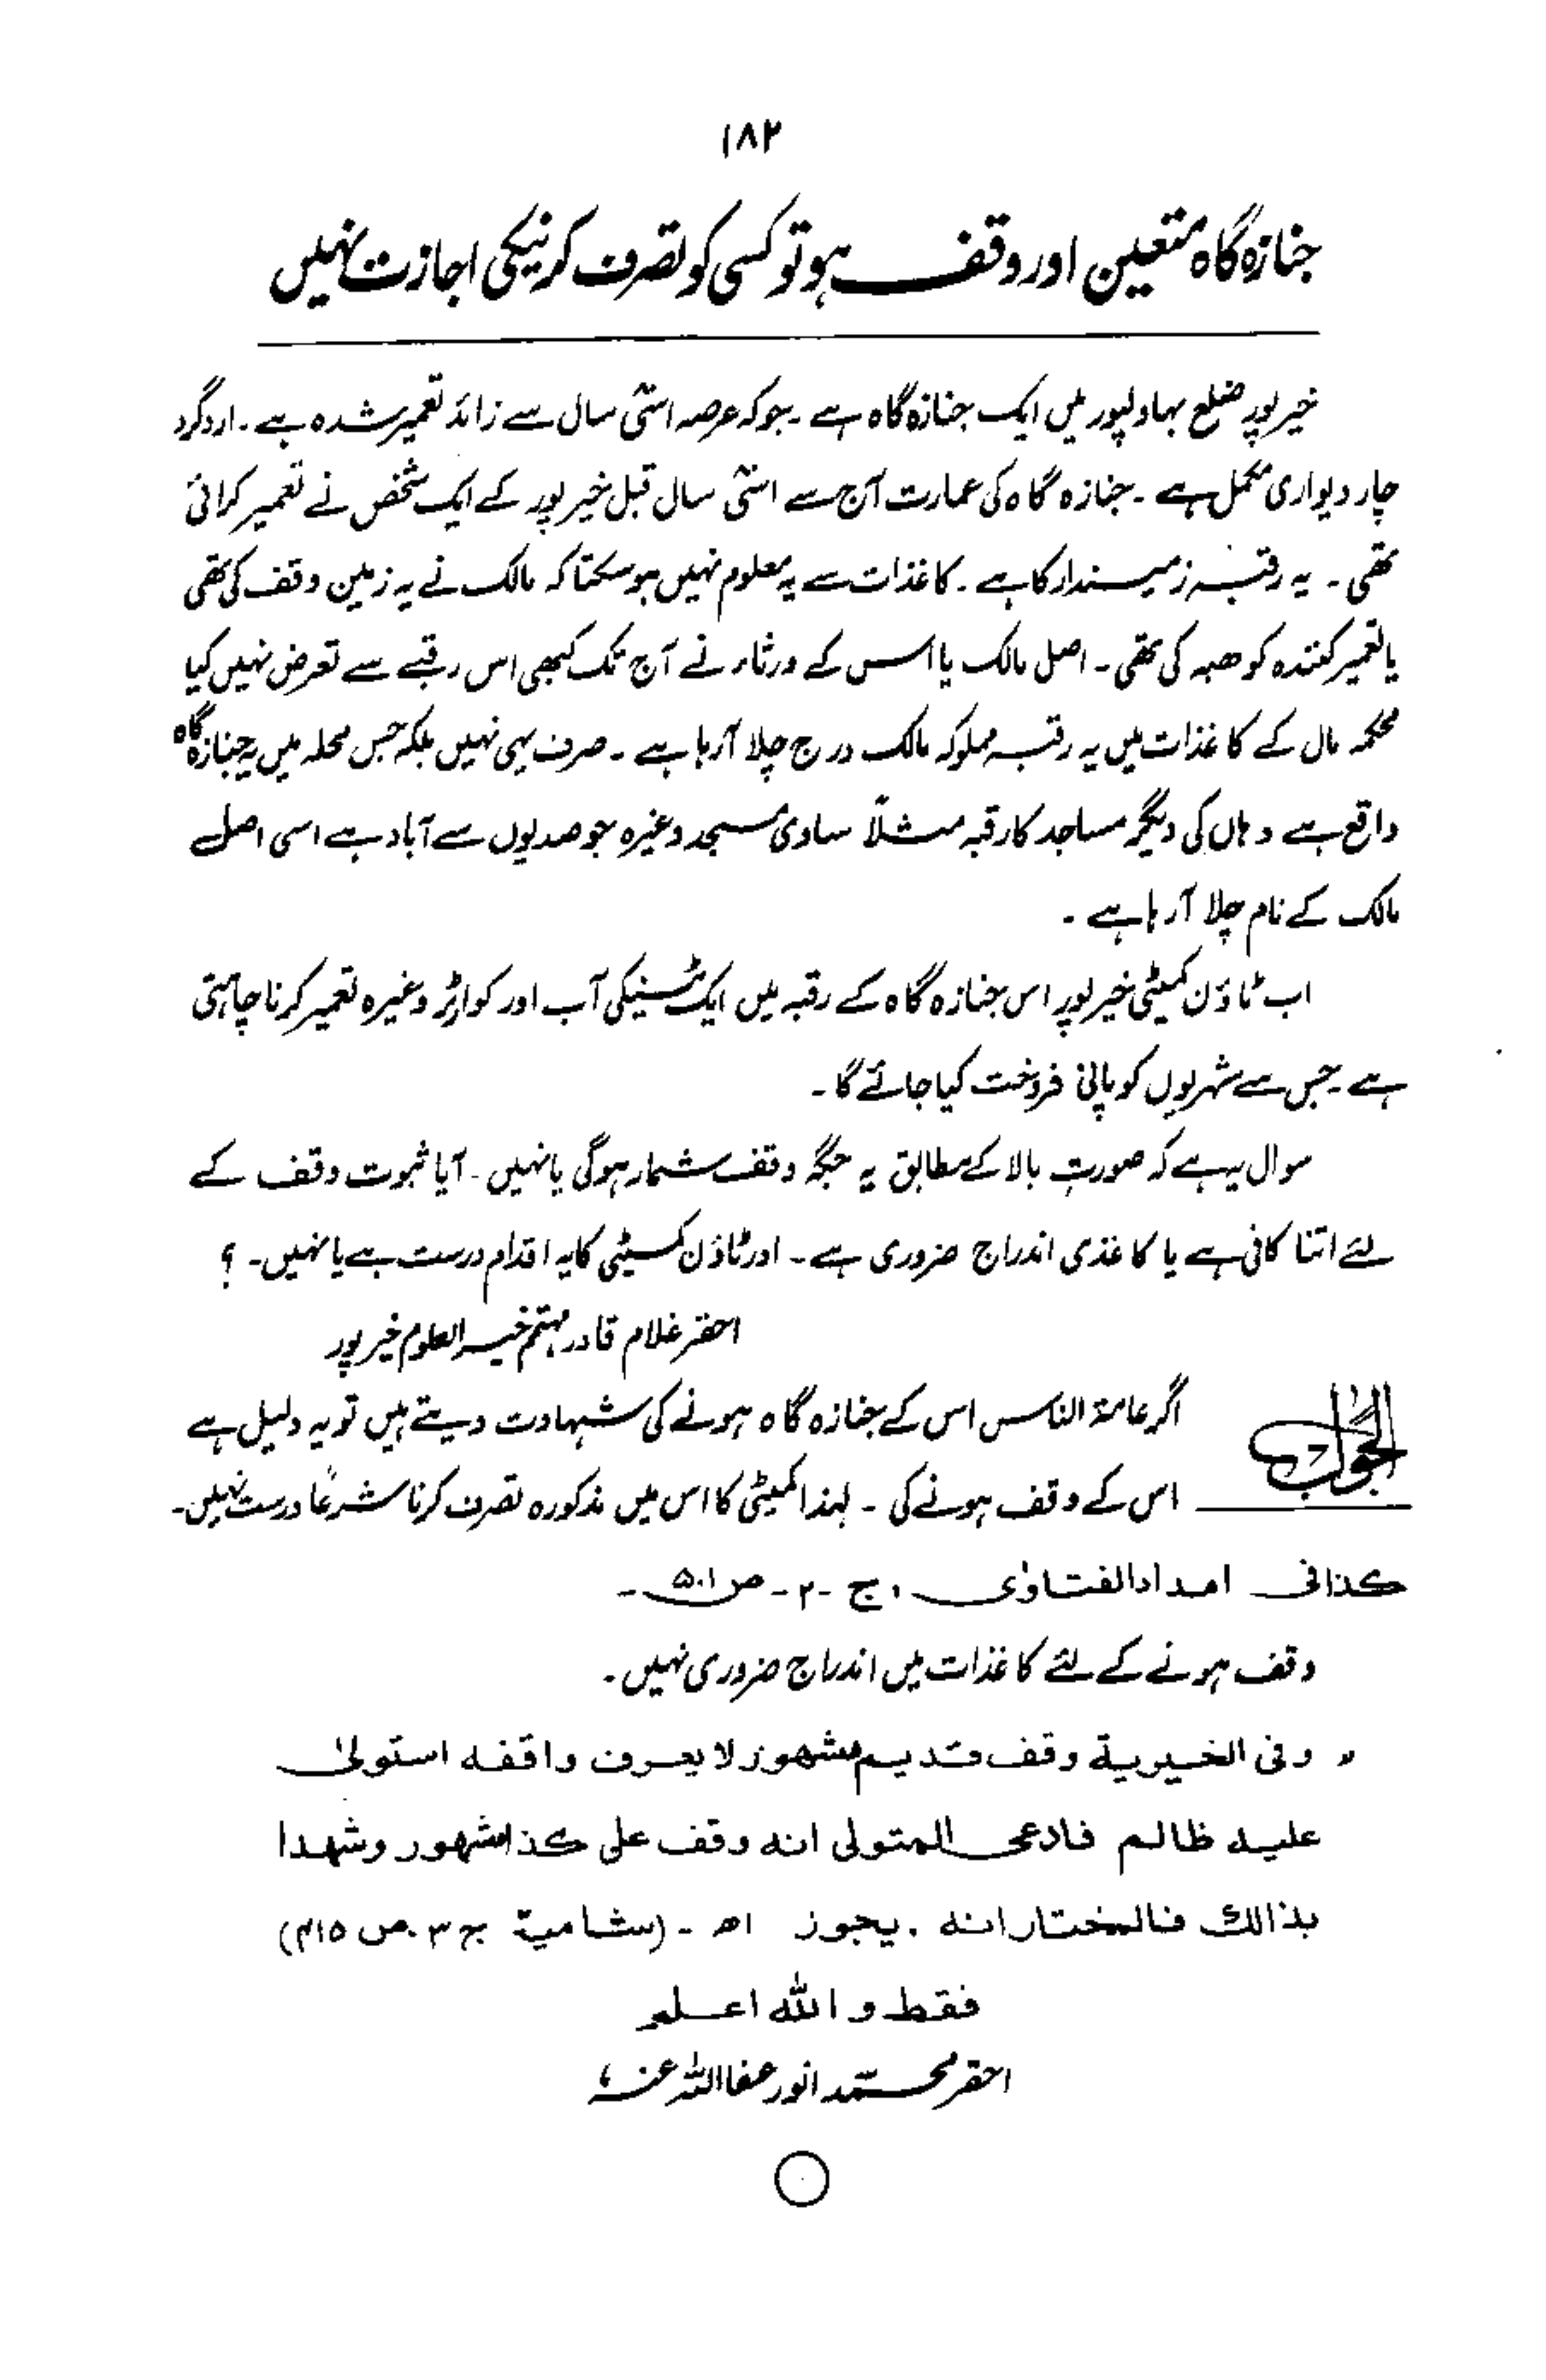 ۱۸۲
جنازہ گاہ متعین اور وقف ہو تو کسی کو تصرف کرنیکی اجازت نہیں
خیرپور ضلع بہاولپور میں ایک جنازہ گاہ ہے ۔ جو کہ عرصہ اسّی سال سے زائد تعمیر شدہ ہے ۔ اردگرد
چار دیواری مکمل ہے ۔ جنازہ گاہ کی عمارت آج سے اسّی سال قبل خیرپور کے ایک شخص نے تعمیر کرائی
تھی ۔ یہ رقبہ زمیندار کا ہے ۔ کاغذات سے یہ معلوم نہیں ہو سکتا کہ مالک نے یہ زمین وقف کی تھی
یا تعمیر کنندہ کو ھبہ کی تھی ۔ اصل مالک یا اس کے ورثاء نے آج تک کبھی اس رقبے سے تعرض نہیں کیا
محکمہ مال کے کاغذات میں یہ رقبہ مملوکہ مالک درج چلا آرہا ہے ۔ صرف یہی نہیں بلکہ جس محلہ میں یہ جنازہ گاہ
واقع ہے وہاں کی دیگر مساجد کا رقبہ مثلاً ساوی مسجد وغیرہ جو صدیوں سے آباد ہے اسی اصل
مالک کے نام چلا آرہا ہے ۔
اب ٹاؤن کمیٹی خیرپور اس جنازہ گاہ کے رقبہ میں ایک ٹینکی آب اور کوارٹر وغیرہ تعمیر کرنا چاہتی
ہے ۔ جس سے شہریوں کو پانی فروخت کیا جائے گا ۔
سوال یہ ہے کہ صورت بالا کے مطابق یہ جگہ وقف شمار ہوگی یا نہیں ۔ آیا ثبوت وقف کے
لئے اتنا کافی ہے یا کاغذی اندراج ضروری ہے ۔ اور ٹاؤن کمیٹی کا یہ اقدام درست ہے یا نہیں ۔ ؟
احقر غلام قادر مہتمم خیر العلوم خیرپور
الجواب
اگر عامۃ الناس اس کے جنازہ گاہ ہونے کی شہادت دیتے ہیں تو یہ دلیل ہے
اس کے وقف ہونے کی ۔ لہذا کمیٹی کا اس میں مذکورہ تصرف کرنا شرعًا درست نہیں ۔
کذافی امداد الفتاوٰی ، ج ۔ ۲ ۔ ص ۵۰۱ ۔
وقف ہونے کے لئے کاغذات میں اندراج ضروری نہیں ۔
" وفی الخیریة وقف قدیم مشهور لا یعرف واقفه استولیٰ
علیه ظالم فادعی المتولی انه وقف علی کذا مشهور وشهدا
بذالك فالمختار انه . یجوز اھ ۔ (شامیة ج ۳ ص ۴۱۵)
فقط واللہ اعلم
احقر محمد انور عفا اللہ عنہ